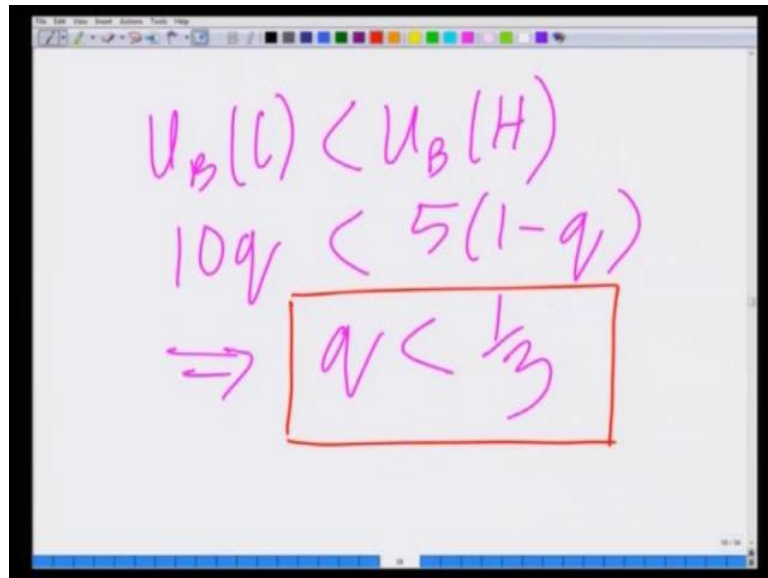 File Edit View Insert Actions Tools Help
U_B(C) < U_B(H)
10q < 5(1-q)
⇒ q < 1/3